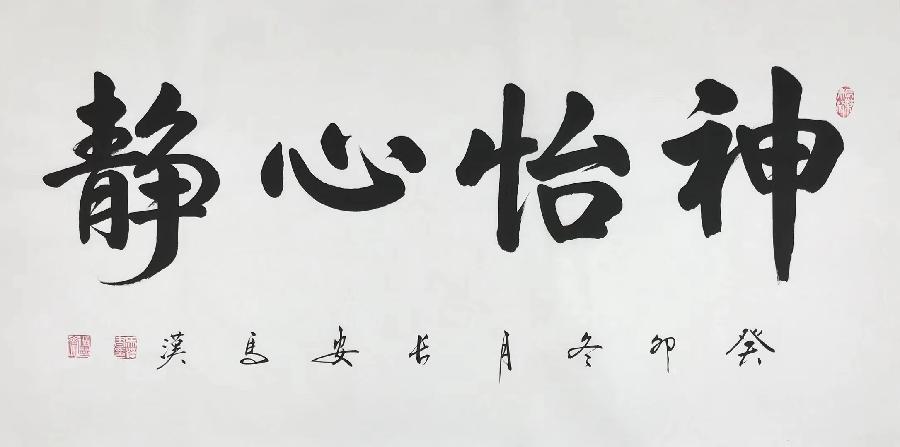 神怡心静
癸卯冬月长安马汉